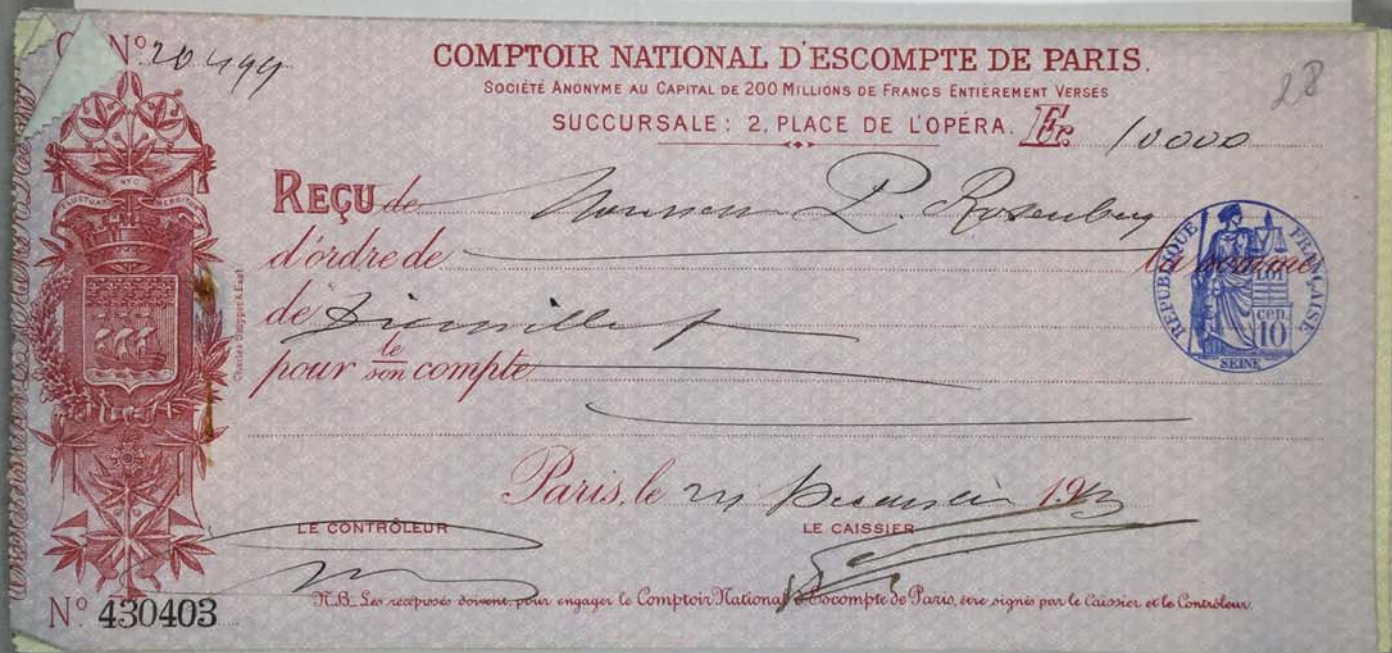 Nº 20499
COMPTOIR NATIONAL D'ESCOMPTE DE PARIS.
SOCIÉTÉ ANONYME AU CAPITAL DE 200 MILLIONS DE FRANCS ENTIÈREMENT VERSÉS
28
SUCCURSALE: 2, PLACE DE L'OPÉRA. Fr. 10000
FLUCTUAT NEC MERGITUR
REÇU de Monsieur P. Rosenberg
d'ordre de la somme
de Dix mille f
pour le son compte
RÉPUBLIQUE FRANÇAISE
LOI
cen. 10
SEINE
Paris, le Decembre 19
LE CONTRÔLEUR LE CAISSIER
N.B. Les récépissés doivent, pour engager le Comptoir National d'Escompte de Paris, être signés par le Caissier et le Contrôleur.
Nº 430403